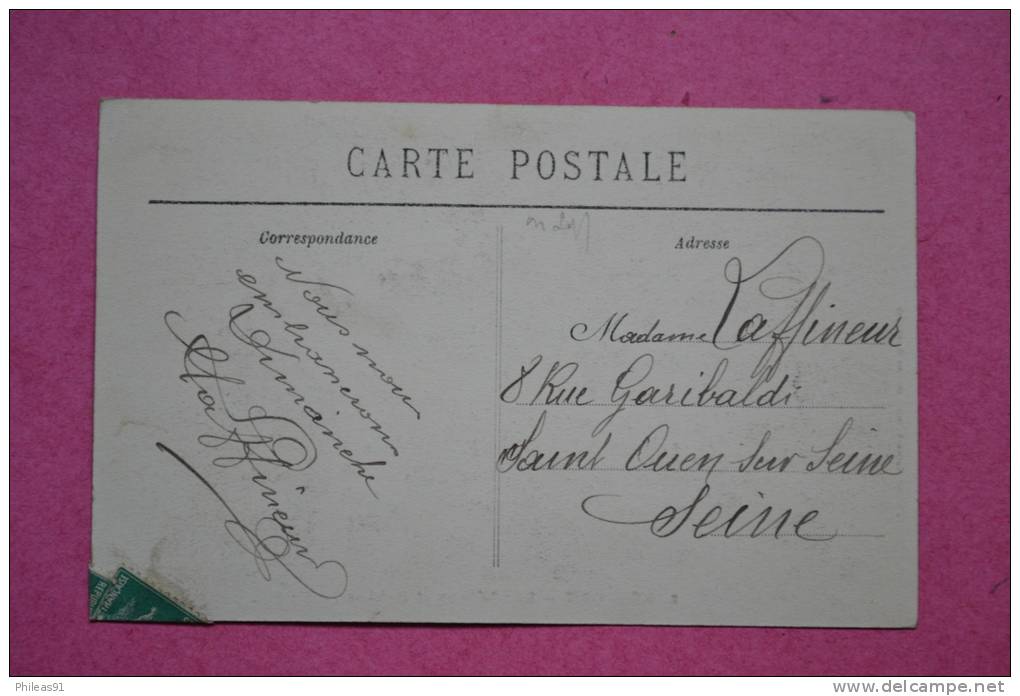 CARTE POSTALE
Correspondance
Nous nous
embrasserons
Dimanche
Laffineur
Adresse
Madame Laffineur
8 Rue Garibaldi
Saint Ouen sur Seine
Seine
Phileas91
www.delcampe.net